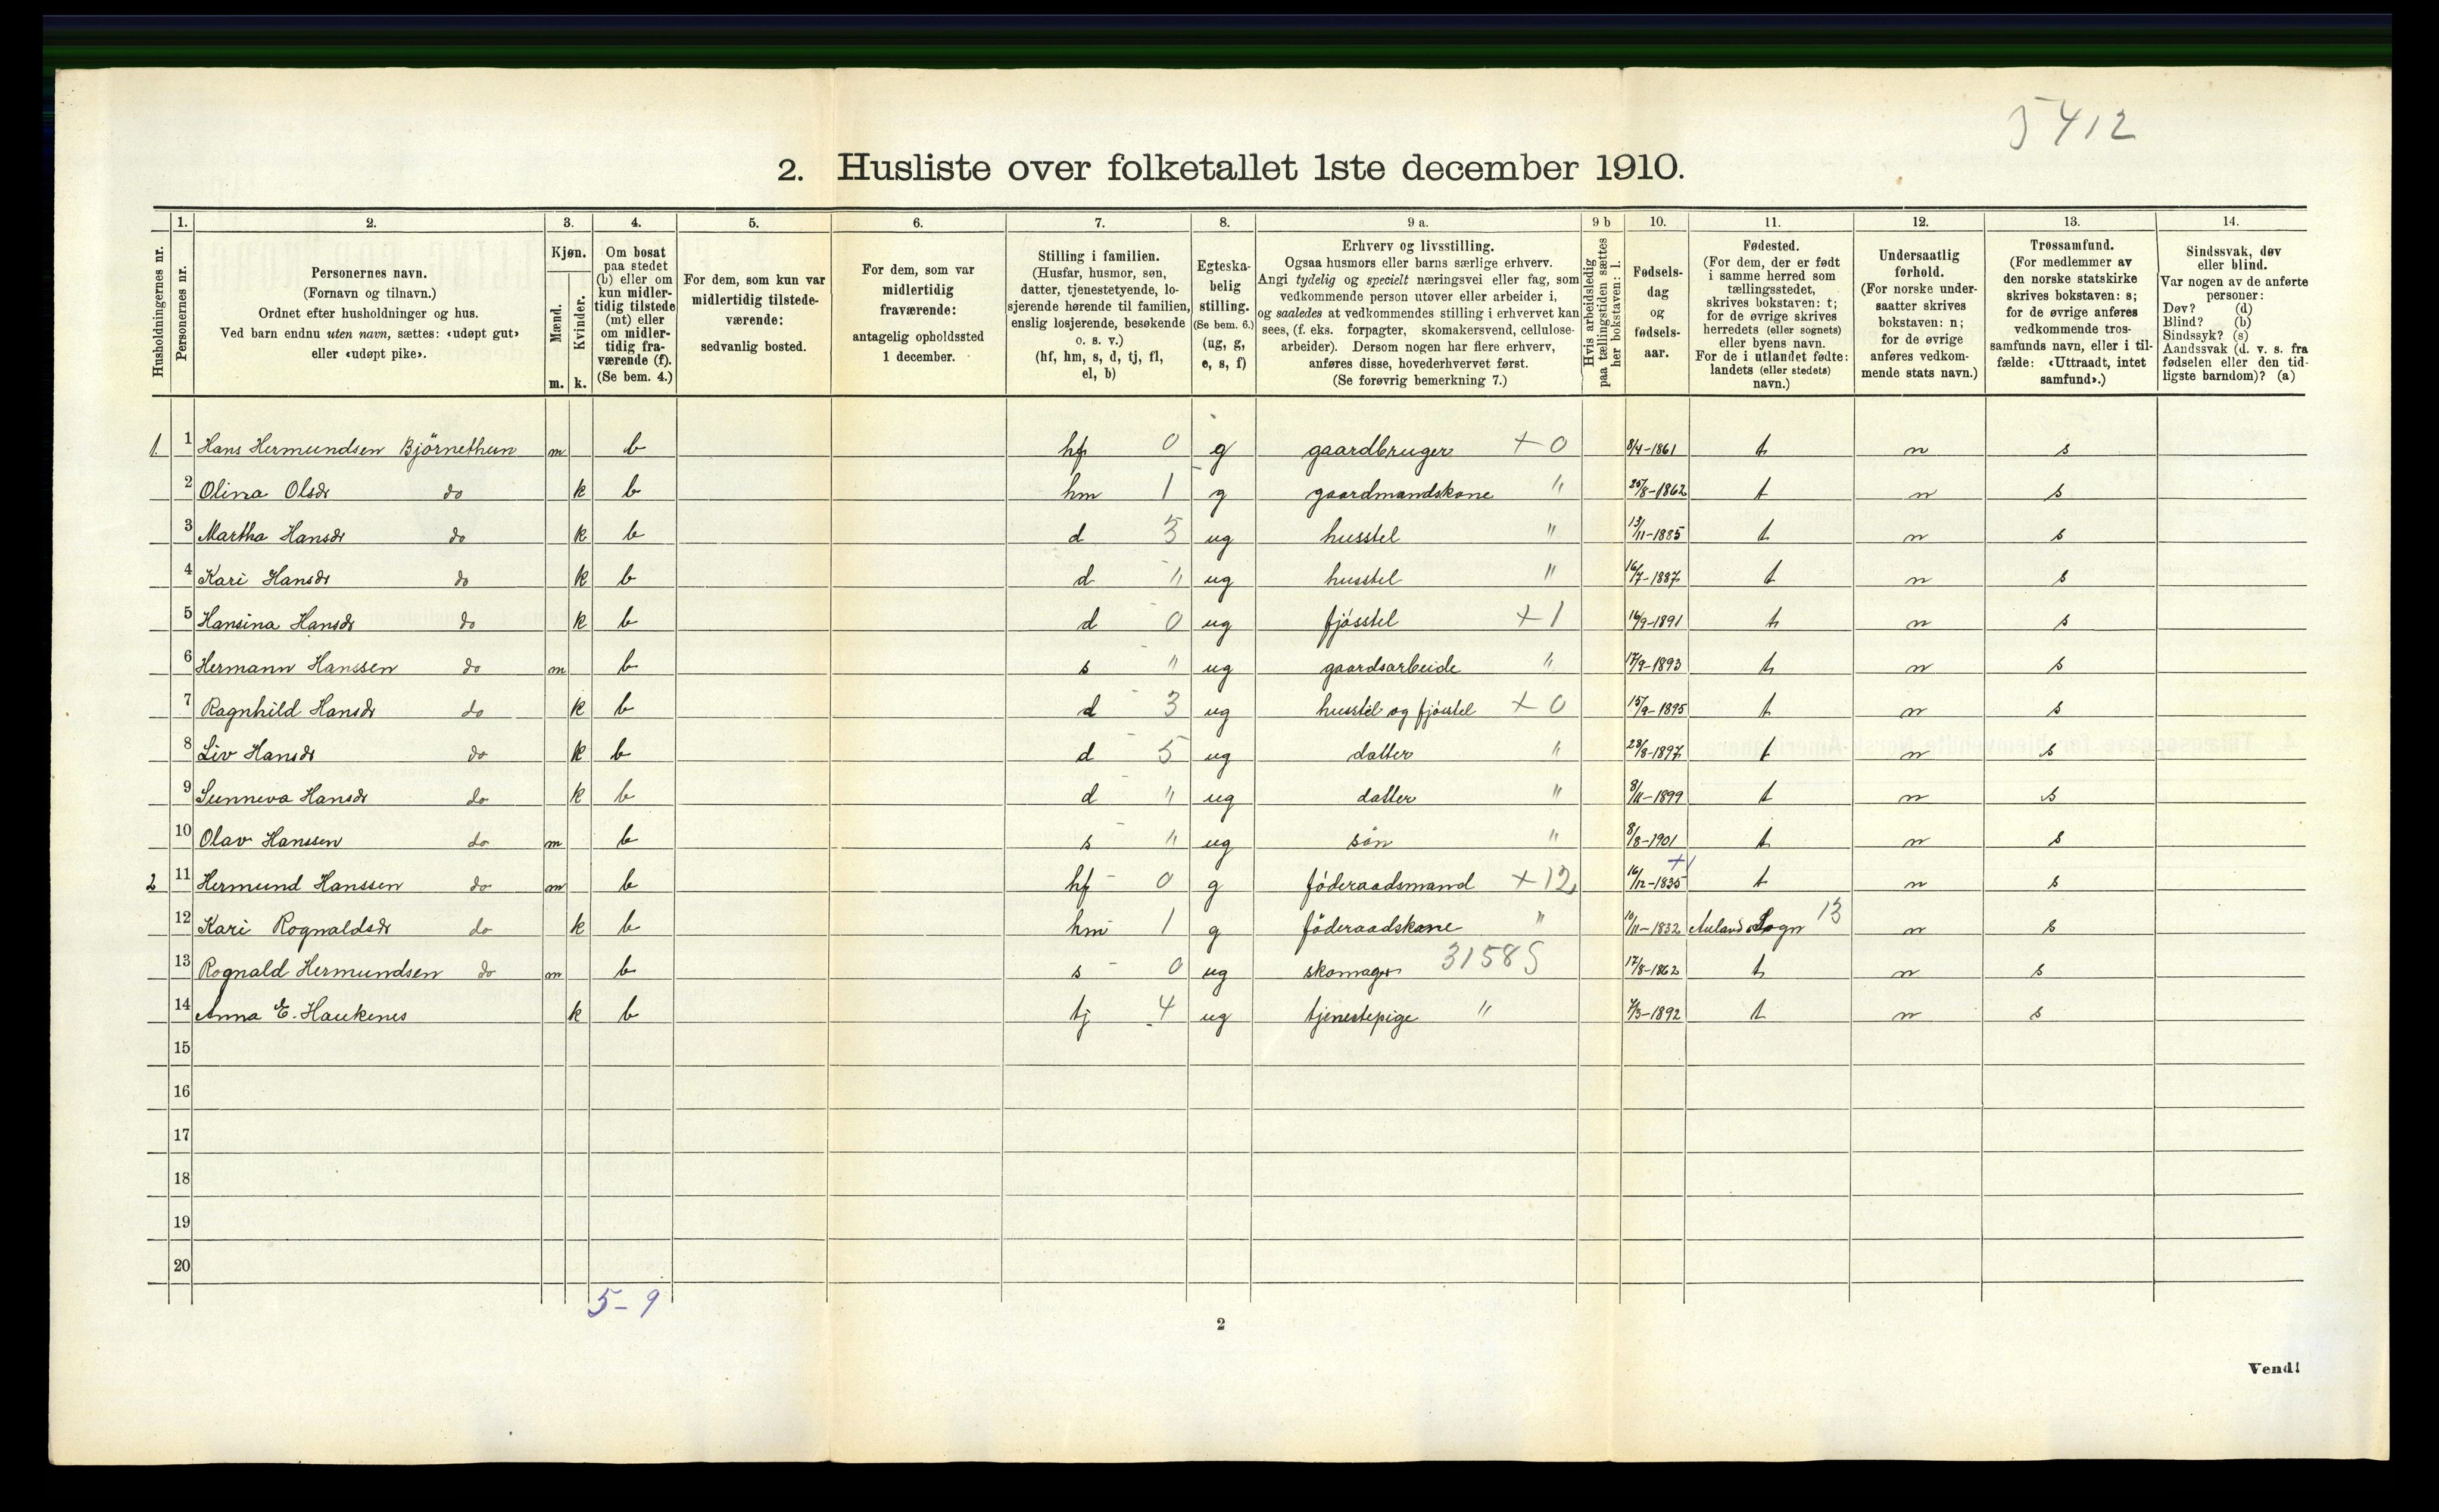 5412
2. Husliste over folketallet 1ste december 1910.
Husholdningernes nr.
1.
Personernes nr.
2.
Personernes navn.
(Fornavn og tilnavn.)
Ordnet efter husholdninger og hus.
Ved barn endnu uten navn, sættes: «udøpt gut»
eller «udøpt pike».
3.
Kjøn.
Mænd.
Kvinder.
m. k.
4.
Om bosat
paa stedet
(b) eller om
kun midler-
tidig tilstede
(mt) eller
om midler-
tidig fra-
værende (f).
(Se bem. 4.)
5.
For dem, som kun var
midlertidig tilstede-
værende:
sedvanlig bosted.
6.
For dem, som var
midlertidig
fraværende:
antagelig opholdssted
1 december.
7.
Stilling i familien.
(Husfar, husmor, søn,
datter, tjenestetyende, lo-
sjerende hørende til familien,
enslig losjerende, besøkende
o. s. v.)
(hf, hm, s, d, tj, fl,
el, b)
8.
Egteska-
belig
stilling.
(Se bem. 6.)
(ug, g,
e, s, f)
9 a.
Erhverv og livsstilling.
Ogsaa husmors eller barns særlige erhverv.
Angi tydelig og specielt næringsvei eller fag, som
vedkommende person utøver eller arbeider i,
og saaledes at vedkommendes stilling i erhvervet kan
sees, (f. eks. forpagter, skomakersvend, cellulose-
arbeider). Dersom nogen har flere erhverv,
anføres disse, hovederhvervet først.
(Se forøvrig bemerkning 7.)
9 b
Hvis arbeidsledig
paa tællingstiden sættes
her bokstaven: l.
10.
Fødsels-
dag
og
fødsels-
aar.
11.
Fødested.
(For dem, der er født
i samme herred som
tællingsstedet,
skrives bokstaven: t;
for de øvrige skrives
herredets (eller sognets)
eller byens navn.
For de i utlandet fødte:
landets (eller stedets)
navn.)
12.
Undersaatlig
forhold.
(For norske under-
saatter skrives
bokstaven: n;
for de øvrige
anføres vedkom-
mende stats navn.)
13.
Trossamfund.
(For medlemmer av
den norske statskirke
skrives bokstaven: s;
for de øvrige anføres
vedkommende tros-
samfunds navn, eller i til-
fælde: «Uttraadt, intet
samfund».)
14.
Sindssvak, døv
eller blind.
Var nogen av de anførte
personer:
Døv? (d)
Blind? (b)
Sindssyk? (s)
Aandssvak (d. v. s. fra
fødselen eller den tid-
ligste barndom)? (a)
1. 1 Hans Hermundsen Björnethun m b hf 0 g gaardbruger + 0 8/4-1861 t n s
2 Olina Olsdr do k b hm 1 g gaardmandskone " 25/8-1862 t n s
3 Martha Hansdr do k b d 5 ug husstel " 13/11-1885 t n s
4 Kari Hansdr do k b d " ug husstel " 16/7-1887 t n s
5 Hansina Hansdr do k b d 0 ug fjósstel + 1 16/9-1891 t n s
6 Hermann Hanssen do m b s " ug gaardsarbeide " 17/9-1893 t n s
7 Ragnhild Hansdr do k b d 3 ug husstel og fjósstel + 0 15/9-1895 t n s
8 Liv Hansdr do k b d 5 ug datter " 28/8-1897 t n s
9 Sunneva Hansdr do k b d " ug datter " 8/11-1899 t n s
10 Olav Hanssen do m b s " ug sön " 8/8-1901 t n s
2 11 Hermund Hanssen do m b hf 0 g föderaadsmand + 12 16/12-1835 +1 t n s
12 Kari Rognaldsdr do k b hm 1 g föderaadskone " 10/11-1832 Aulands Sogn 13 n s
13 Rognald Hermundsen do m b s 0 ug skomager 3158 S 17/8-1862 t n s
14 Anna E. Haukenes k b tj 4 ug tjenestepige " 7/3-1892 t n s
15
16
17
18
19
20
5-9
2
Vend!